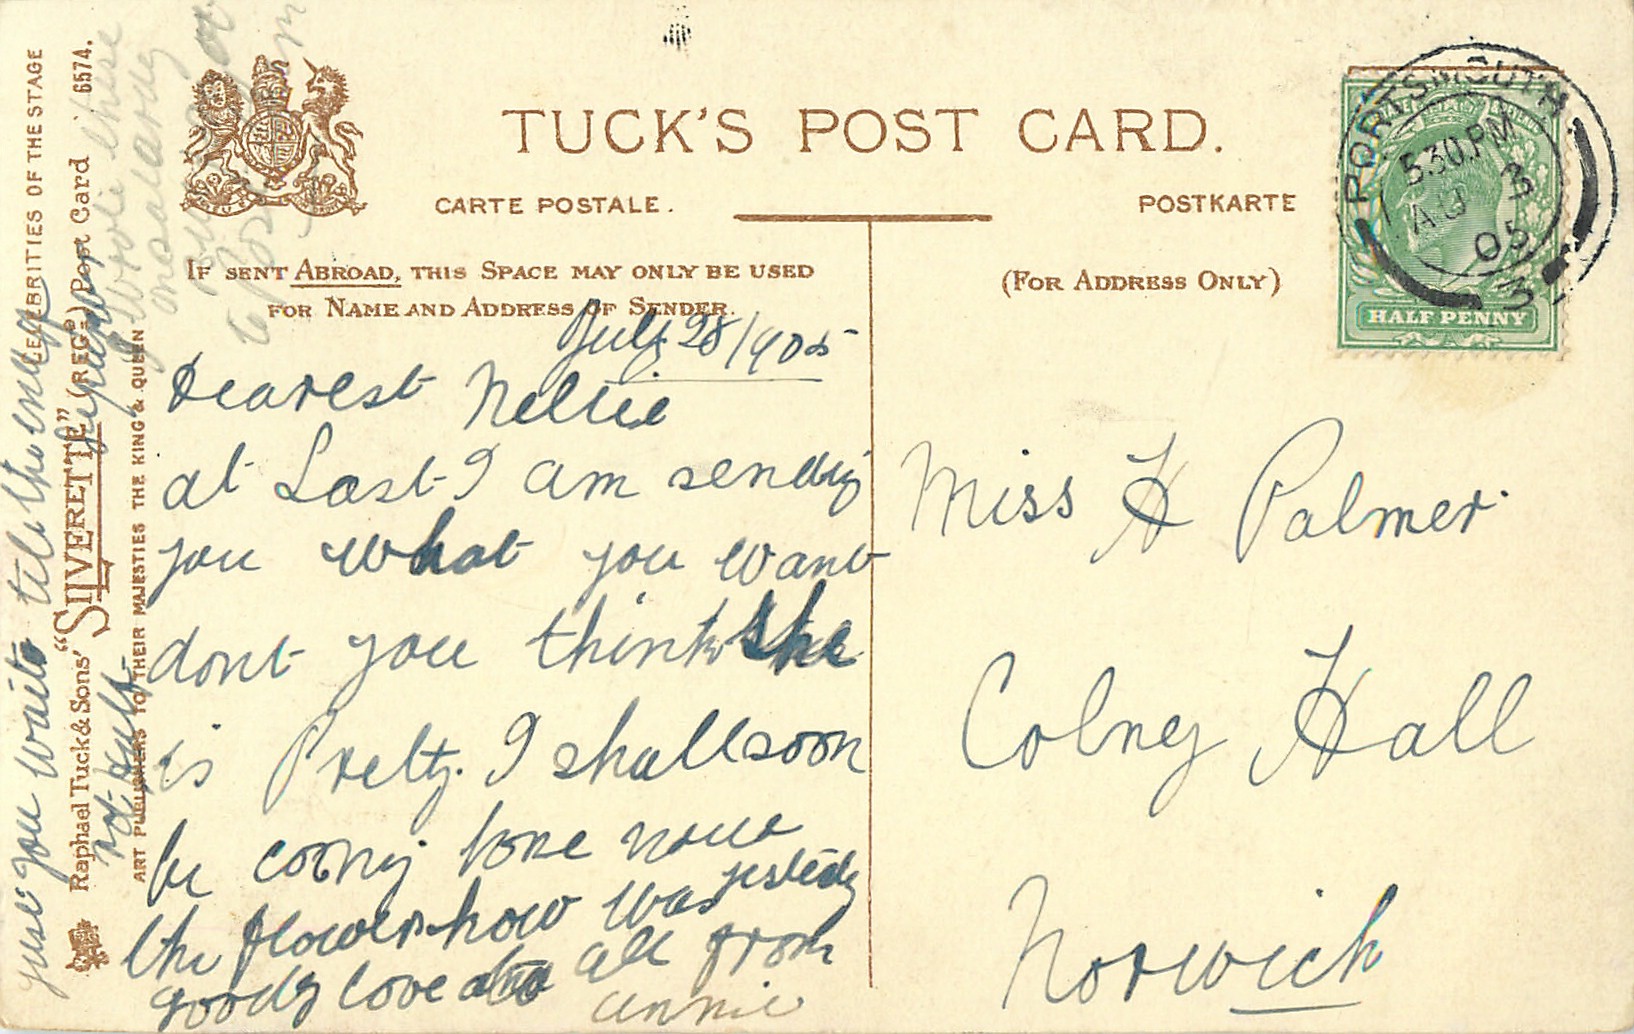 TUCK'S POST CARD.
CARTE POSTALE.
POSTKARTE
IF SENT ABROAD, THIS SPACE MAY ONLY BE USED
FOR NAME AND ADDRESS OF SENDER.
(FOR ADDRESS ONLY)
PORTSMOUTH
5.30 PM
AU 3
05
3
HALF PENNY
July 28/1905
Dearest Nellie
at Last I am sendig
you what you want
dont you think she
is Pretty. I shall soon
be coming home now
the flower show was yesterdy
goodby love to all from
annie
Miss H Palmer
Colney Hall
Norwich
just you wait till the end of
CELEBRITIES OF THE STAGE
Raphael Tuck & Sons' "SILVERETTE" (REGD.) Post Card 6574.
ART PUBLISHERS TO THEIR MAJESTIES THE KING & QUEEN